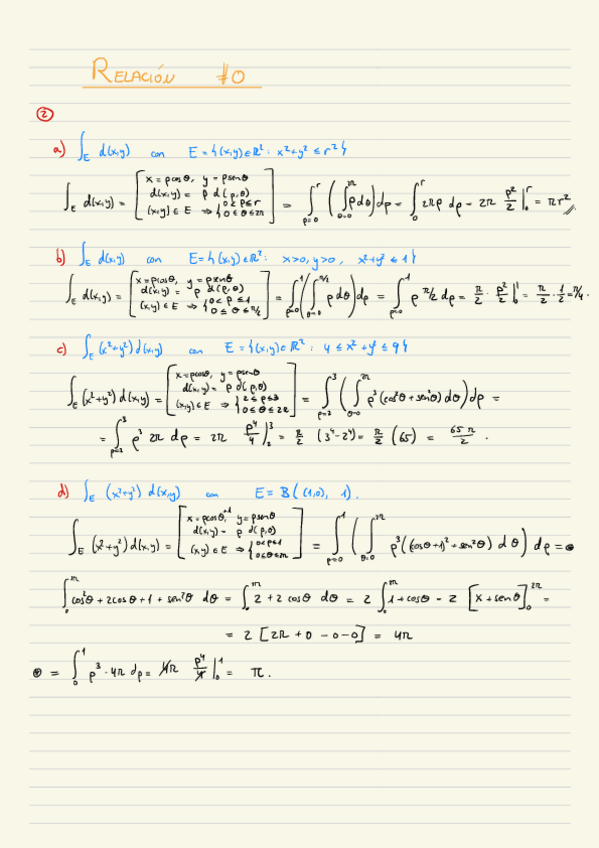 RELACIÓN #0
②
a) ∫_E d(x,y) con E = {(x,y)∈ℝ² : x²+y² ≤ r²}
∫_E d(x,y) = [x = ρcosθ, y = ρsenθ
d(x,y) = ρ d(ρ,θ)
(x,y)∈E ⇒ {0<ρ≤r
0≤θ≤2π] = ∫_{ρ=0}^{r} (∫_{θ=0}^{2π} ρdθ)dρ = ∫_0^r 2πρ dρ = 2π ρ²/2 |_0^r = πr²//
b) ∫_E d(x,y) con E = {(x,y)∈ℝ² : x>0, y>0, x²+y² ≤ 1}
∫_E d(x,y) = [x = ρcosθ, y = ρsenθ
d(x,y) = ρ d(ρ,θ)
(x,y)∈E ⇒ {0<ρ≤1
0≤θ≤π/2] = ∫_{ρ=0}^{1} (∫_{θ=0}^{π/2} ρ dθ)dρ = ∫_{ρ=0}^{1} ρ π/2 dρ = π/2 · ρ²/2 |_0^1 = π/2 · 1/2 = π/4.
c) ∫_E (x²+y²) d(x,y) con E = {(x,y)∈ℝ² : 4 ≤ x²+y² ≤ 9}
∫_E (x²+y²) d(x,y) = [x = ρcosθ, y = ρsenθ
d(x,y) = ρ d(ρ,θ)
(x,y)∈E ⇒ {2≤ρ≤3
0≤θ≤2π] = ∫_{ρ=2}^{3} (∫_{θ=0}^{2π} ρ³(cos²θ+sen²θ)dθ)dρ =
= ∫_{ρ=2}^{3} ρ³ 2π dρ = 2π ρ⁴/4 |_2^3 = π/2 (3⁴-2⁴) = π/2 (65) = 65π/2.
d) ∫_E (x²+y²) d(x,y) con E = B((1,0), 1).
∫_E (x²+y²) d(x,y) = [x = ρcosθ+1, y = ρsenθ
d(x,y) = ρ d(ρ,θ)
(x,y)∈E ⇒ {0<ρ≤1
0≤θ≤2π] = ∫_{ρ=0}^{1} (∫_{θ=0}^{2π} ρ³((cosθ+1)²+sen²θ) dθ) dρ = ⊛
∫_0^{2π} cos²θ+2cosθ+1+sen²θ dθ = ∫_0^{2π} 2+2cosθ dθ = 2 ∫_0^{2π} 1+cosθ = 2 [x+senθ]_0^{2π} =
= 2 [2π+0-0-0] = 4π
⊛ = ∫_0^1 ρ³·4π dρ = 4π ρ⁴/4 |_0^1 = π.